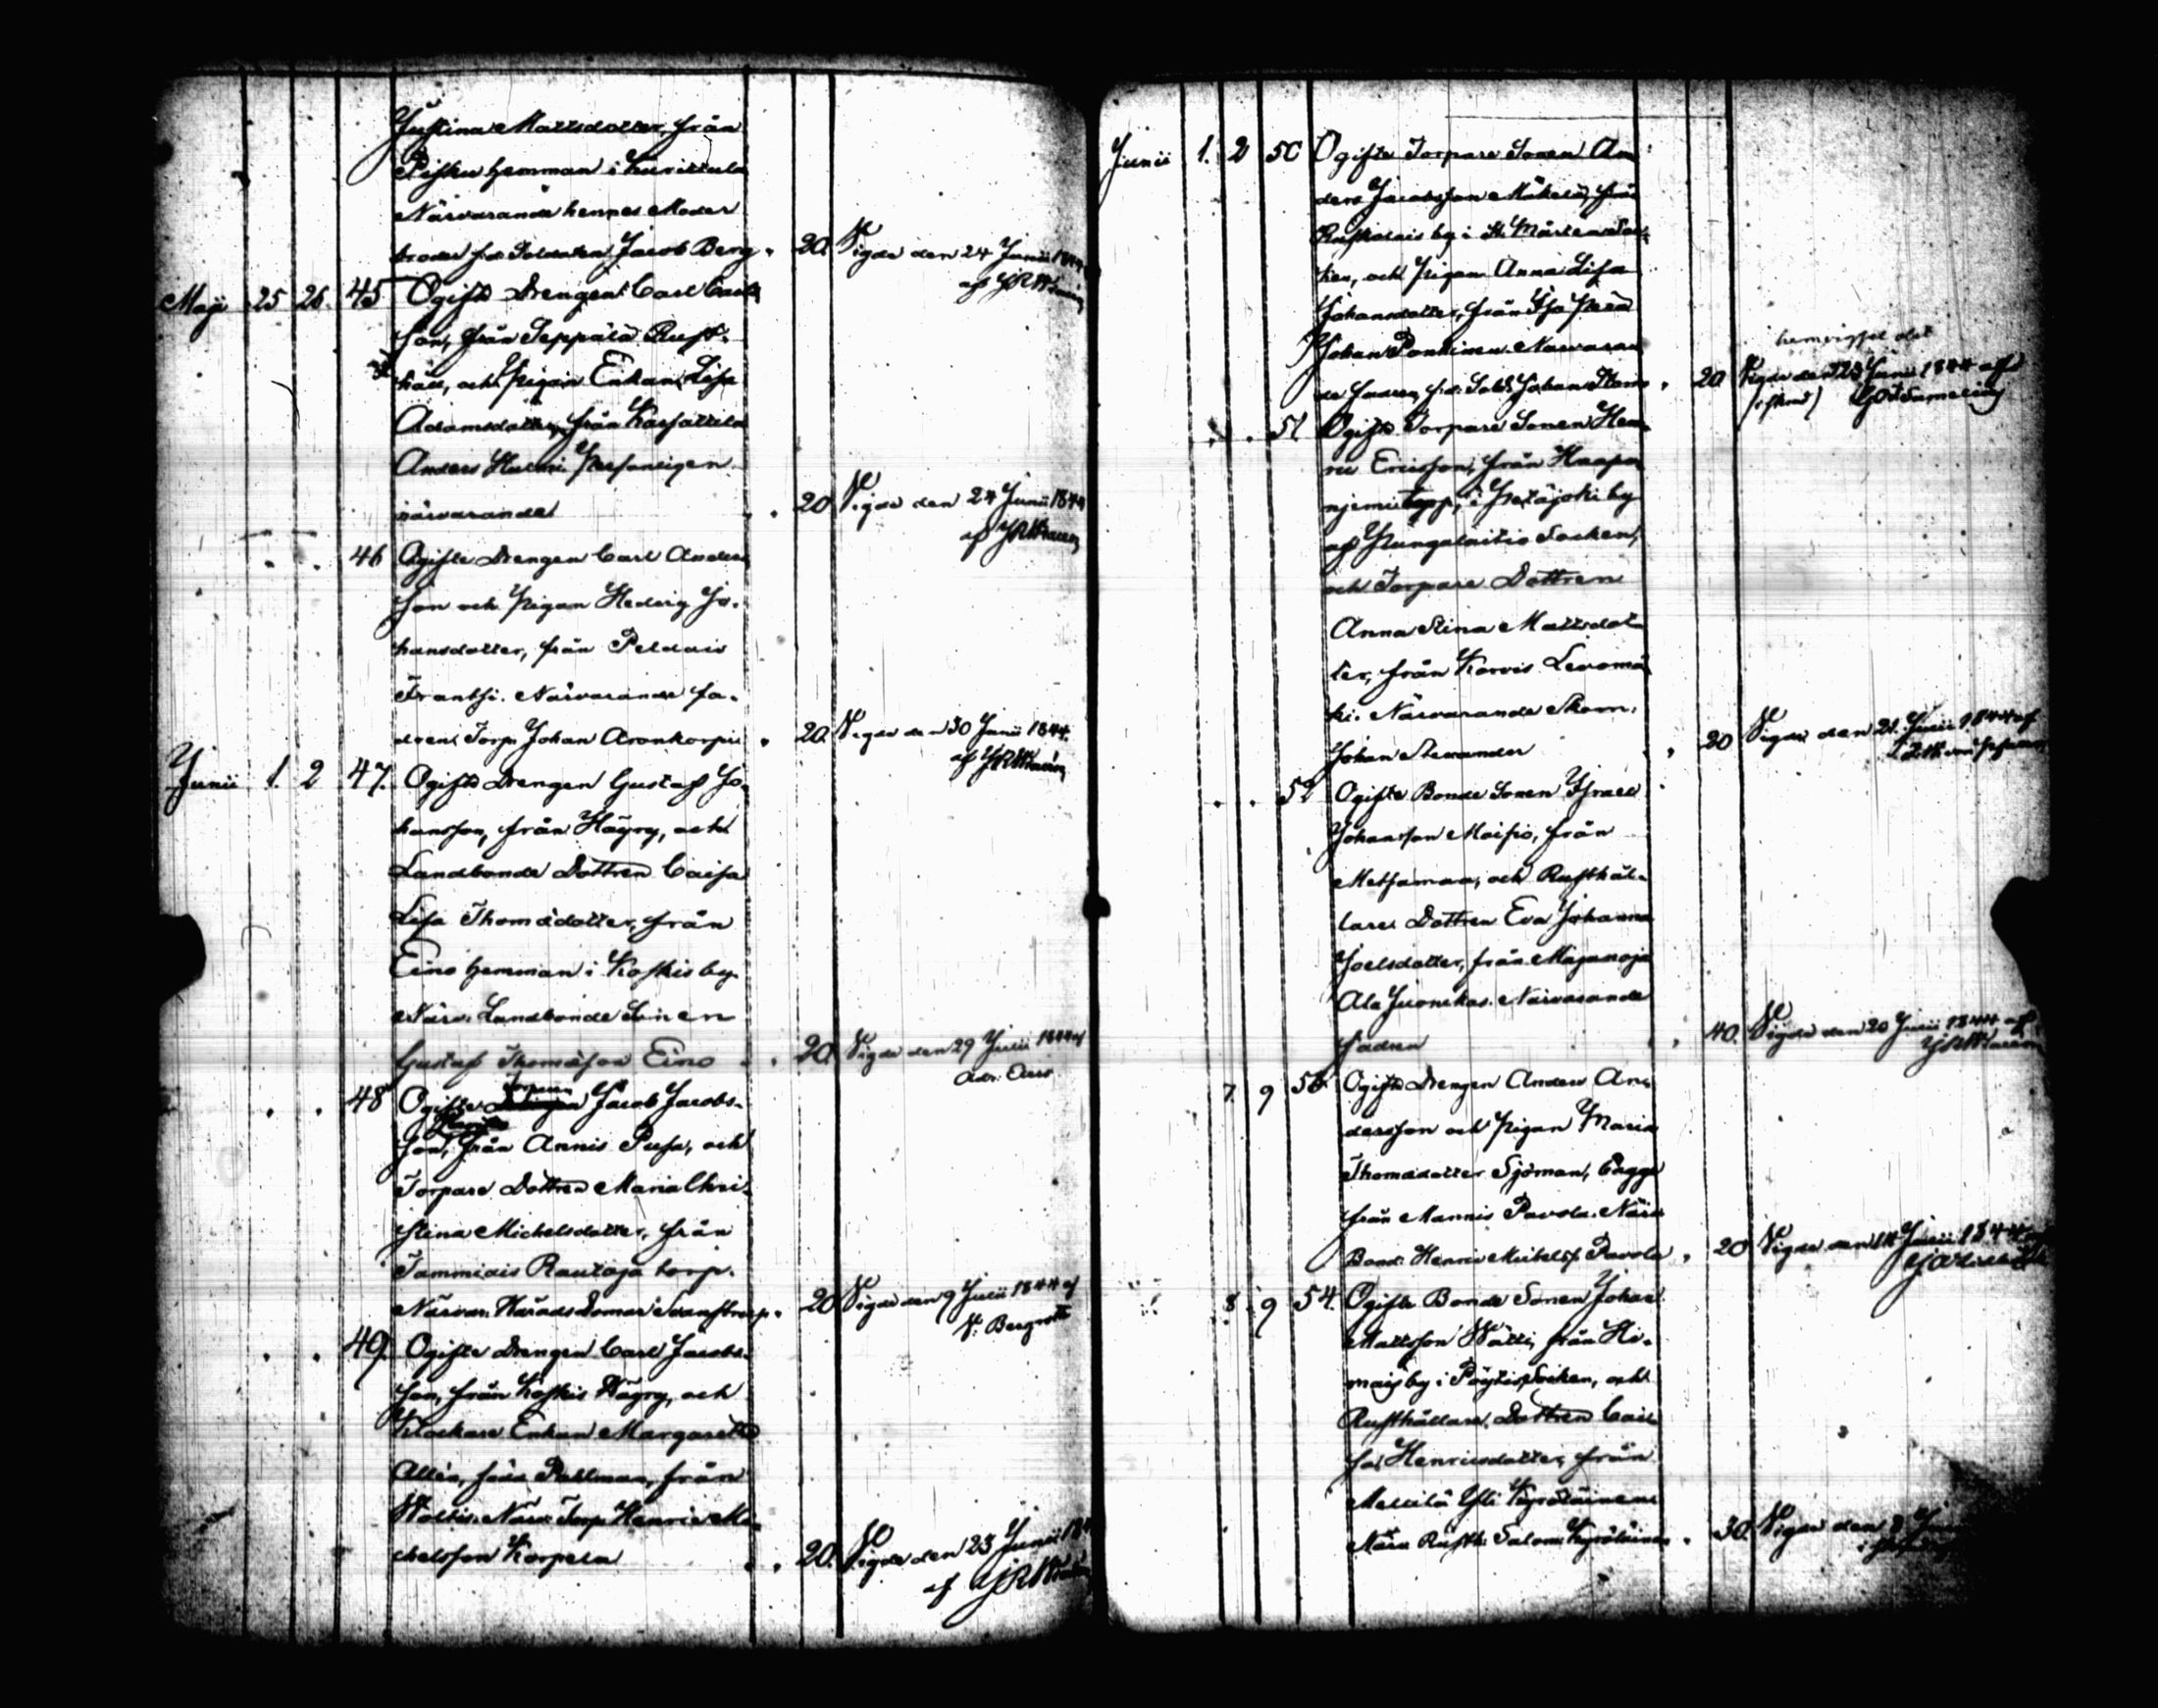 Justina Mattsdotter, från
hemman i Kurittula
Närvarande hennes Moder
broder f.d. Soldaten Jacob Berg. 20. Vigde den 24 Junii 1844
af
Maji 25 26. 45 Ogifte Drengen Carl Carls
son, från Seppälä Rust-
håll, och Pigan Enkan Lisa
Adamsdotter, från Karjattila
Anders Personligen
närvarande 20 Vigde den 24 Junii 1844
af
46 Ogifte Drengen Carl Anders
son och Pigan Hedvig Jo-
hansdotter, från Peldais
Frantsi. Närvarande fa-
dren Torp. Johan Aronkorpi 20. Vigde den 30 Junii 1844.
af
Junii 1. 2 47. Ogifte Drengen Gustaf Jo-
hansson, från Hägry, och
Landbonde Dottren Caisa
Lisa Thomasdotter, från
Eino hemman i Koskis by.
Närv. Landbonde Sonen
Gustaf Thomasson Eino 20. Vigde den 29 Junii 1844 af
48 Ogifte Drengen Jacob Jacobs-
son, från Annis Pusa, och
Torpare Dottren Maria Chri-
stina Michelsdotter, från
Tammiais Rautoja torp.
Närvar. Härads Domar 20 Vigde den 9 Julii 1844 af
49. Ogifte Drengen Carl Jacobs-
son, från Koskis Hägry, och
Klockare Enkan Margaretha
född Pahlman, från
Närv. Torp. Henric Mi-
chelsson Korpela 20. Vigde den 23 Junii 184
af
Junii 1. 2 50 Ogifte Torpare Sonen An
ders Jacobsson Mäkelä, från
by i St. Mårtens Soc-
ken, och Pigan Anna Lisa
Johansdotter, från Iso Perä
Johan Pankinen. Närvaran
de fadren, f.d. Sold. Johan 20 Vigde den 23 Junii 1844 af
51 Ogifte Torpare Sonen Hen-
ric Ericsson, från Haapa
niemi torp, i Petäjoki by
af Pungalaitio Socken,
och Torpare Dottren
Anna Stina Mattsdot-
ter, från Korvis Levomä
ki. Närvarande Skom.
Johan 20 Vigde den 21 Julii 1844 af
52 Ogifte Bonde Sonen Israel
Johansson Moisio, från
Metsamaa, och Rusthål-
lare Dottren Eva Johanna
Joelsdotter, från Majanoja
Ala Juonikas. Närvarande
fadren 40. Vigde den 20 Junii 1844 af
7 9 53 Ogifte Drengen Anders An-
dersson och Pigan Maria
Thomasdotter Sjöman, bägge
från Mannis Pavola. Närv.
Bond. Henric Michelss. Pavola 20 Vigde den Julii 1844
8 9 54. Ogifte Bonde Sonen Johan
Mattsson Wätti, från Hi-
mais by i Pöytis Socken, och
Rusthållare Dottren Cai-
sa Henricsdotter, från
Mellilä Yli Kyröläinen
Närv. Rusth. Salom. Kyröläinen 30. Vigde den